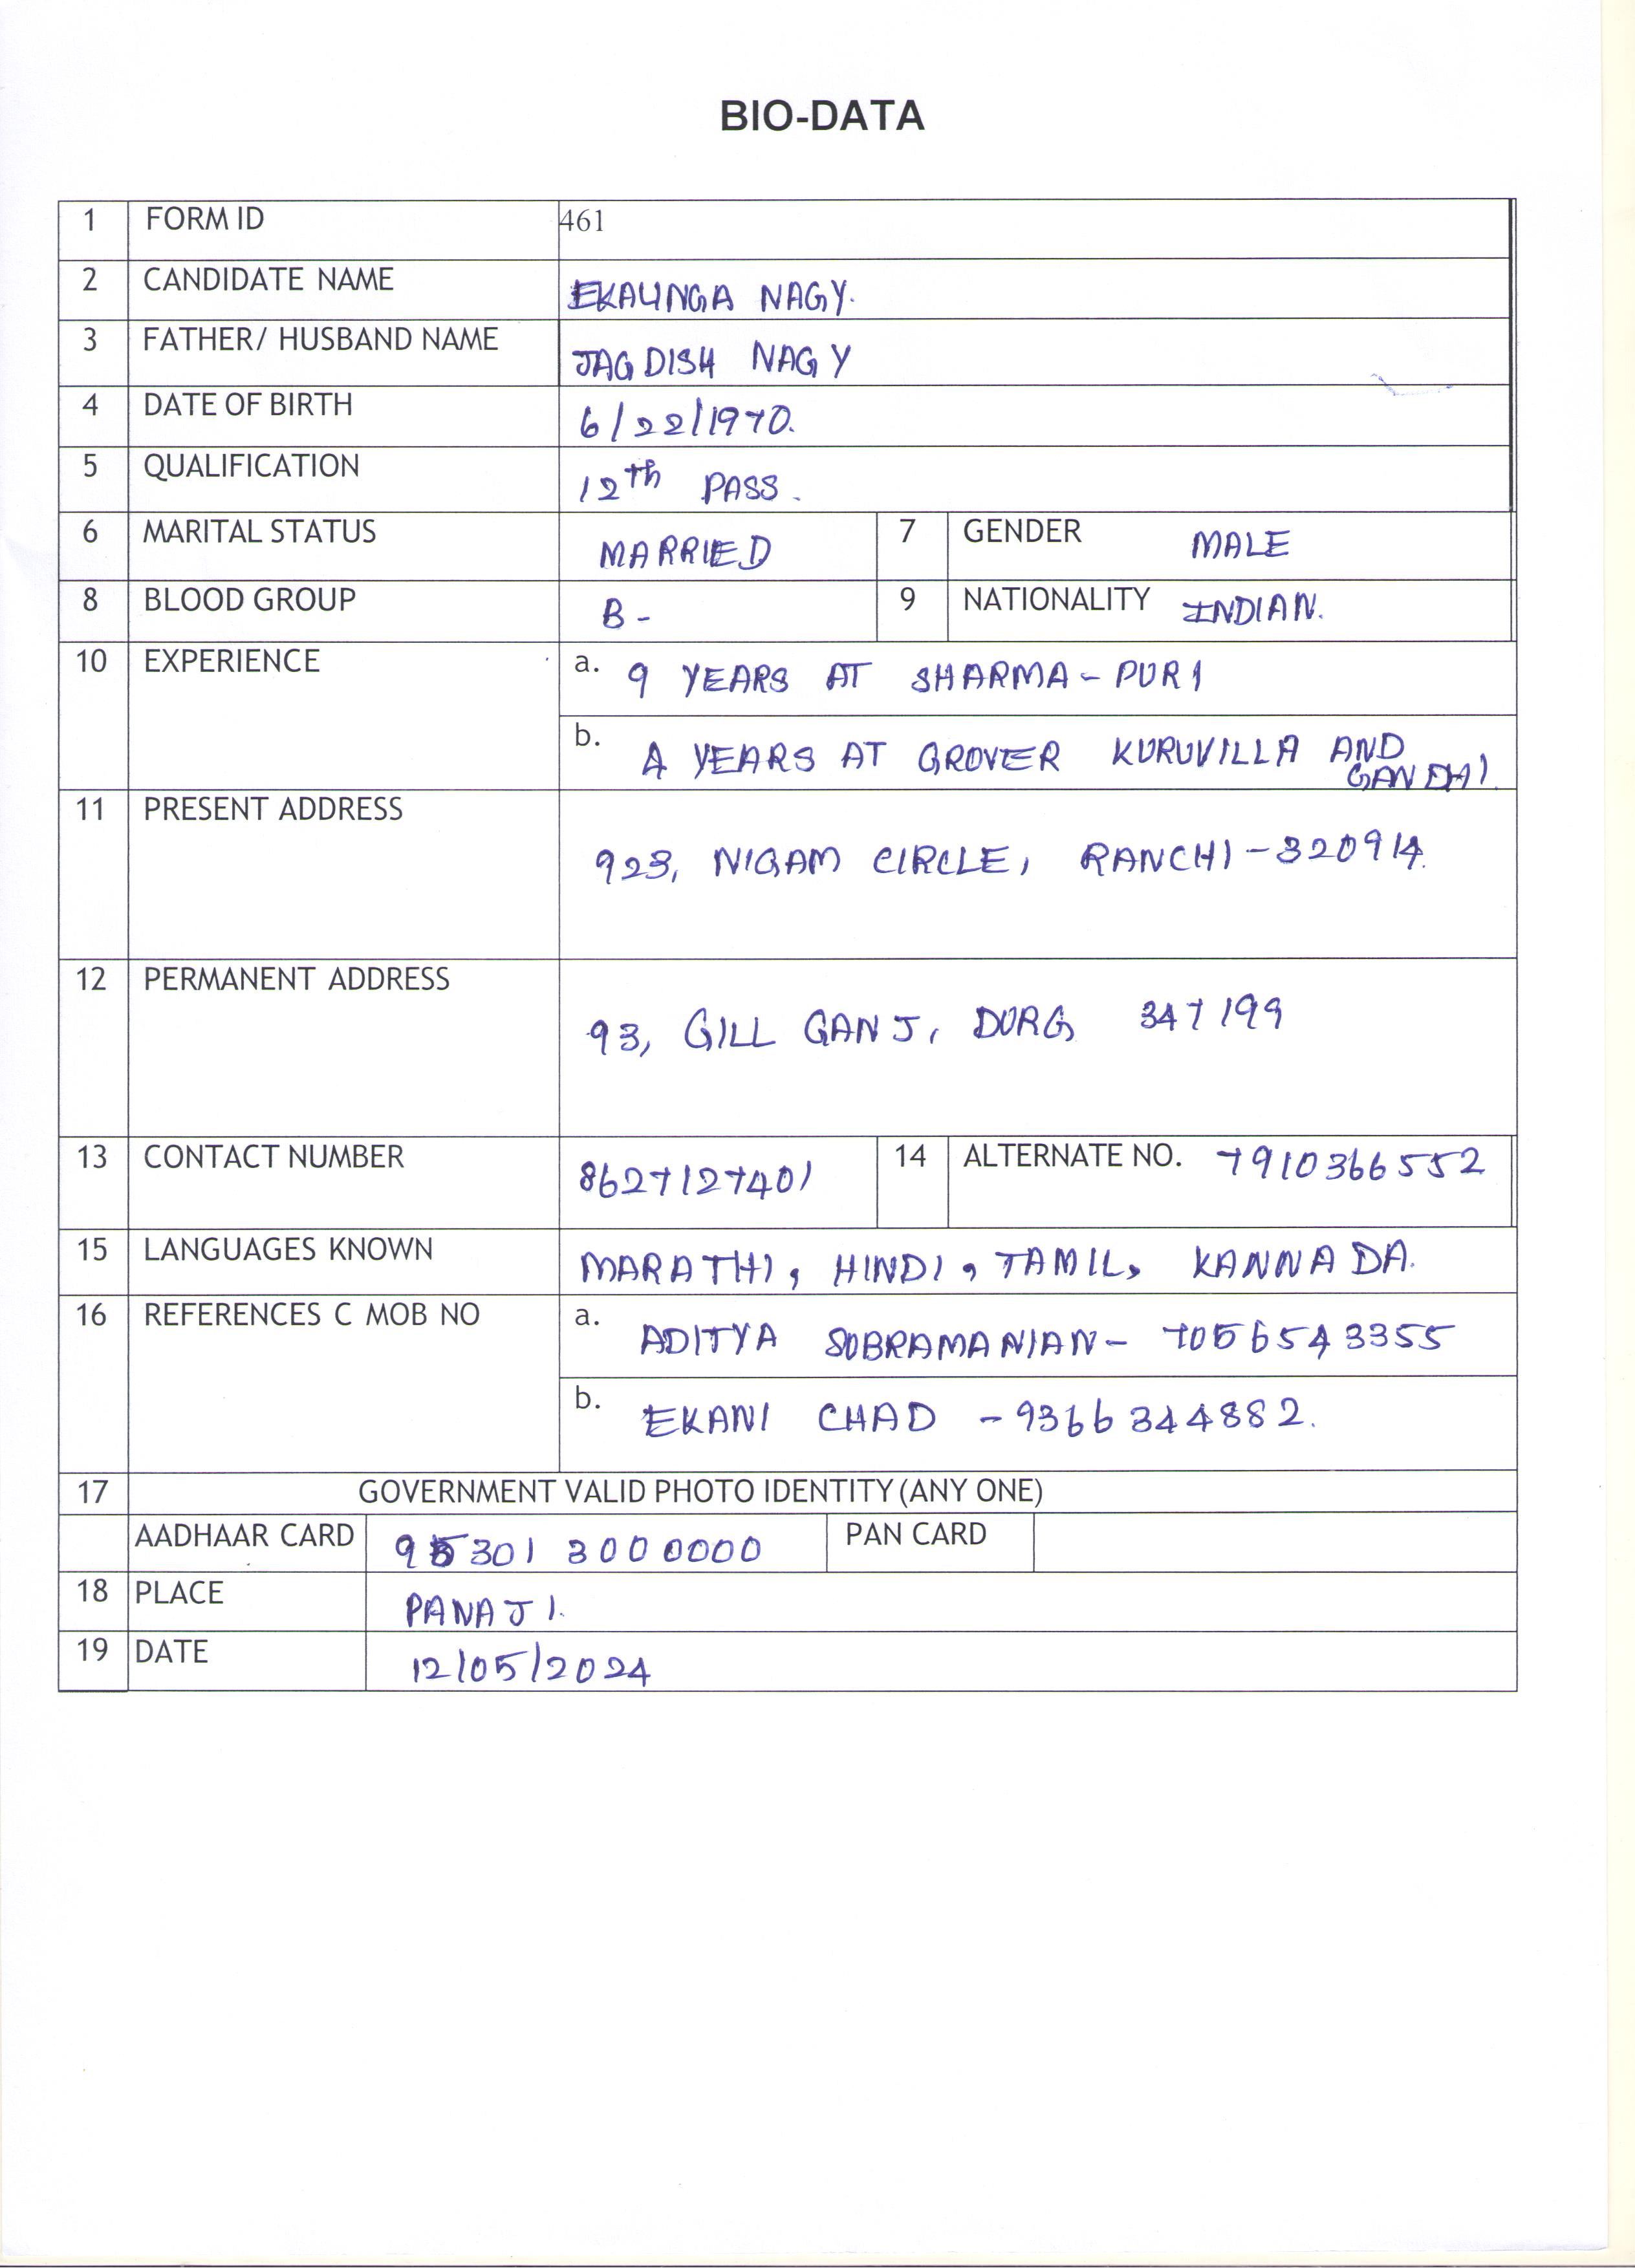 BIO-DATA
1 FORM ID 461
2 CANDIDATE NAME EKALINGA NAGY.
3 FATHER/ HUSBAND NAME JAGDISH NAGY
4 DATE OF BIRTH 6/22/1970.
5 QUALIFICATION 12th PASS.
6 MARITAL STATUS MARRIED 7 GENDER MALE
8 BLOOD GROUP B- 9 NATIONALITY INDIAN.
10 EXPERIENCE a. 9 YEARS AT SHARMA-PURI
b. 4 YEARS AT GROVER KURUVILLA AND
GANDHI.
11 PRESENT ADDRESS
923, NIGAM CIRCLE, RANCHI-320914.
12 PERMANENT ADDRESS
93, GILL GANJ, DURG, 347199
13 CONTACT NUMBER 8627127401 14 ALTERNATE NO. 7910366552
15 LANGUAGES KNOWN MARATHI, HINDI, TAMIL, KANNADA.
16 REFERENCES C MOB NO a. ADITYA SUBRAMANIAN- 7056543355
b. EKANI CHAD -9366344882.
17 GOVERNMENT VALID PHOTO IDENTITY (ANY ONE)
AADHAAR CARD 95301 3000000 PAN CARD
18 PLACE PANAJI.
19 DATE 12/05/2024